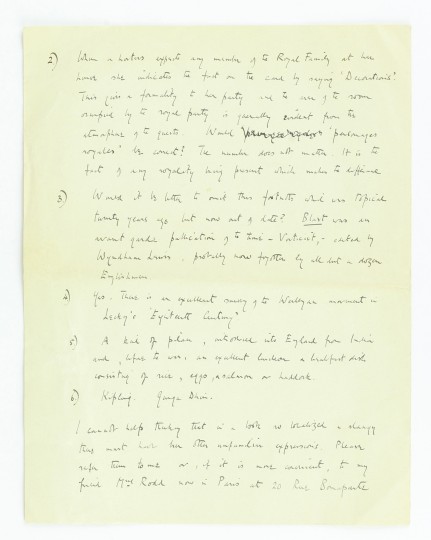 2) When a hostess expects any member of the Royal Family at her
house she indicates the fact on the card by saying 'Decorations'.
This gives a formality to her party and the area of the room
occupied by the royal party is generally evident from the
atmosphere of the guests. Would 'personnages
royales' be correct? The number does not matter. It is the
fact of any royalty being present which makes the difference
3) Would it be better to omit this footnote which was topical
twenty years ago but now out of date? Blast was an
avant garde publication of the time – Vorticist, – edited by
Wyndham Lewis. probably now forgotten by all but a dozen
Englishmen.
4) Yes. There is an excellent survey of the Wesleyan movement in
Lecky's "Eighteenth Century"
5) A kind of pilau, introduced into England from India
and, before the war, an excellent luncheon or breakfast dish
consisting of rice, eggs, & salmon or haddock.
6) Kipling. Gunga Dhin.
I cannot help thinking that in a book so localized & slangy
there must have been other unfamiliar expressions. Please
refer them to me or, if it is more convenient, to my
friend Mrs Rodd now in Paris at 20 Rue Bonaparte